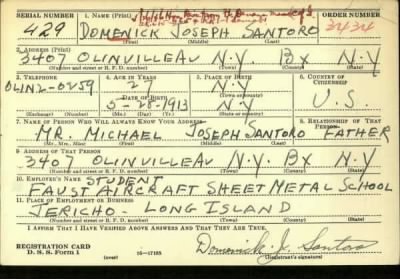 SERIAL NUMBER 1. NAME (Print) ORDER NUMBER
429 DOMENICK JOSEPH SANTORO 3434
(First) (Middle) (Last)
2. ADDRESS (Print)
3407 OLINVILLE AV N.Y. BX N.Y
(Number and street or R. F. D. number) (Town) (County) (State)
3. TELEPHONE 4. AGE IN YEARS 5. PLACE OF BIRTH 6. COUNTRY OF CITIZENSHIP
27 N.Y
OLIN2-0459 DATE OF BIRTH (Town or county) U.S.
5-28-1913 N.Y
(Exchange) (Number) (Mo.) (Day) (Yr.) (State or country)
7. NAME OF PERSON WHO WILL ALWAYS KNOW YOUR ADDRESS 8. RELATIONSHIP OF THAT PERSON
MR. MICHAEL JOSEPH SANTORO FATHER
(Mr., Mrs., Miss) (First) (Middle) (Last)
9. ADDRESS OF THAT PERSON
3407 OLINVILLE AV N.Y. BX N.Y
(Number and street or R. F. D. number) (Town) (County) (State)
10. EMPLOYER'S NAME STUDENT
FAUST AIRCRAFT SHEET METAL SCHOOL
11. PLACE OF EMPLOYMENT OR BUSINESS
JERICHO LONG ISLAND
(Number and street or R. F. D. number) (Town) (County) (State)
I AFFIRM THAT I HAVE VERIFIED ABOVE ANSWERS AND THAT THEY ARE TRUE.
REGISTRATION CARD
D. S. S. Form 1 16—17105 Domenick J. Santoro
(Registrant's signature)